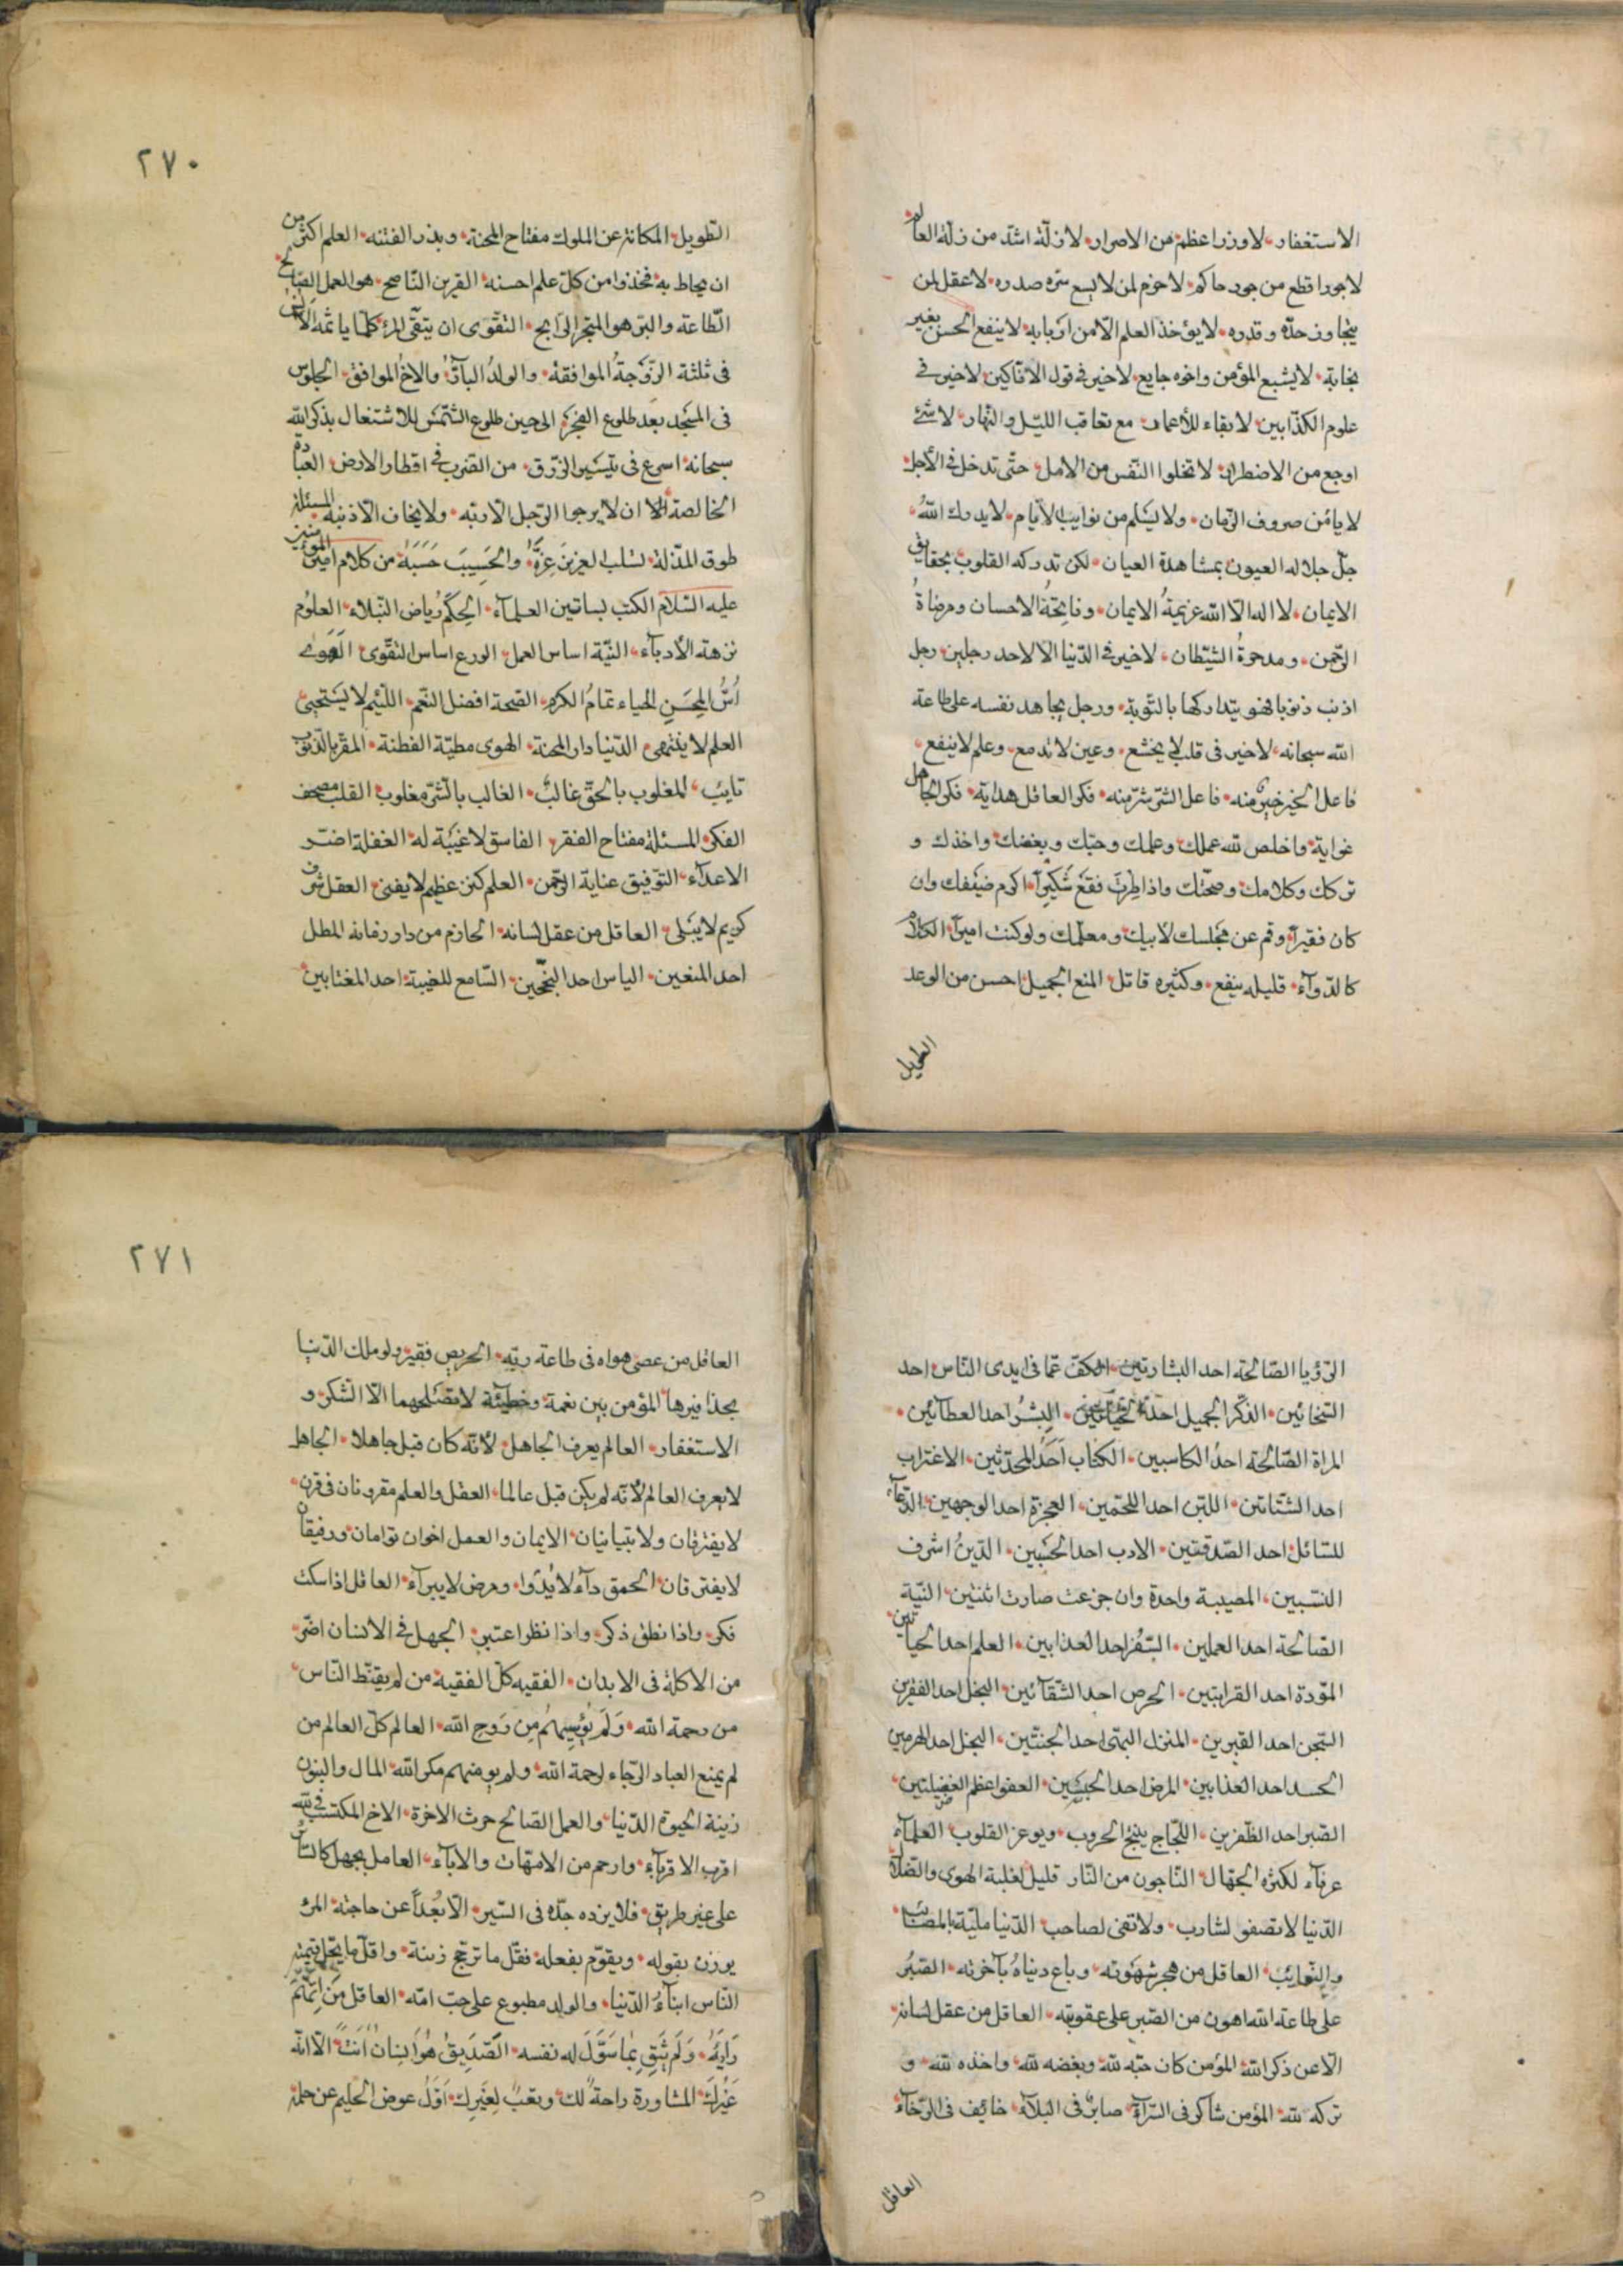 الاستغفار، لا وزر اعظم من الاصرار، لا زلّة اشدّ من زلّة العالم
لا جور اقطع من جور حاكم، لا حزم لمن لا يسع سرّه صدره، لا عقل لمن
يتجاوز حدّه وقدره، لا يؤخذ العلم الّا من اربابه، لا ينفع الحسن بغير
نجابة، لا يشبع المؤمن واخوه جايع، لا خير في قول الافّاكين، لا خير في
علوم الكذّابين، لا بقاء للأعمار مع تعاقب الليّل والنّهار، لا شئ
اوجع من الاضطرار، لا تخلوا النّفس من الأمل، حتّى تدخل في الأجل،
لا يامن صروف الزّمان، ولا يسَلم من نوايب الأيّام، لا يدرك اللهُ
جلّ جلاله العيون بمشاهدة العيان، لكن تدركه القلوب بحقايق
الايمان، لا اله الّا الله عزيمةُ الايمان، وفاتحةُ الاحسان ومرضاةُ
الرّحمن، ومدحرةُ الشيّطان، لا خير في الدّنيا الّا لاحد رجلين، رجل
اذنب ذنوبا فهو يتداركها بالتّوبة، ورجل يجاهد نفسه على طاعة
الله سبحانه، لا خير فى قلب لا يخشع، وعين لا تدمع، وعلم لا ينفع،
فاعل الخير خير منه، فاعل الشرّ شرّ منه، فكر العاقل هداية، فكر الجاهل
غواية، واخلص لله عملك وعلمك وحبّك وبغضك واخذك و
تركك وكلامك وصمتك واذا طِرتَ فقَعْ شَكيراً، اكرم ضيَفك وان
كان فقيراً، وقم عن مجَلسك لأبيك ومعلّمك ولو كنت اميراً، الكلام
كالدّوآء، قليله ينفع، وكثيره قاتل، المنع الجميل احسن من الوعد
الطّويل
٢٧٠
التّطويل، المكانة عن الملوك مفتاح المحنة، وبذر الفتنه، العلم اكثر من
ان يحاط به، فخذوا من كلّ علم احسنه، القرين النّاصح، هو العمل الصّالح
الطّاعة والبرّ هو المتجر الرّابح، التقّوى ان يتقّى المرء كلّما ياثمه الانس
فى ثلثة الزّوجةُ الموافقه، والولدُ البآرّ، والاخُ الموافق، الجلوس
فى المسَجد بعَد طلوع الفجَر، الى حين طلوع الشّمسَ للاشتغال بذكر الله
سبحانه، اسرع فى تيسَير الرّزق، من الضّرب في اقطار الارض، العبادة
الخالصة الّا ان لا يرجوا الرّجل الّا ربّه، ولا يخاف الّا ذنبه، المسئلة
طوق المذّلة، تسلب العزيزَ عِزّهُ، والحَسِيبَ حَسَبَهُ، من كلام امير المؤمنين
عليه السّلام الكتب بساتين العلمآء، الحِكَمُ رياض النّبلاء، العلوم
نزهة الأدبآء، النيّة اساس العمل، الورع اساس التقّوى، الهَوَى
اُسّ المِحَن، الحياء تمامُ الكرم، الصّحة افضل النّعم، اللّئيم لا يسَتحيى
العلم لا ينتهى، الدّنيا دار المحنة، الهوى مطيّة الفطنة، المقرّ بالذّنوب
تايب، المغلوب بالحقّ غالب، الغالب بالشّر مغلوب، القلب مصحف
الفكر، المسئلة مفتاح الفقر، الفاسق لا غيَبة له، الغفلة اضرّ
الاعدآء، التوّفيق عناية الرّحمن، العلم كنز عظيم لا يفنى، العقل شرف
كريم لا يبَلى، العاقل من عقل لسانه، الحازم من دارَ زمانه، المطل
احد المنعين، الياس احد النّجحين، السّامع للغيبة احد المغتابين،
الرّؤيا الصّالحة احد البشارتين، الكفّ عمّا في ايدى النّاس احد
السّخائين، الذكّر الجميل احد الحياتين، البِشرُ احد العطآئين،
المراة الصّالحة احدُ الكاسبين، الكتاب اَحَدُ المحدّثين، الاغتراب
احد الشّتاتين، اللبّن احد اللحّمين، العجزة احد الوجهين، الدّعآء
للسّائل احد الصّدقتين، الادب احد الحسَبين، الدّينُ اشرف
النسّبين، المصيبة واحدة وان جزعت صارت اثنتين، النيّة
الصّالحة احد العملين، السّفرُ احد العذابين، العلم احد الحياتين
المودّة احد القرابتين، الحرص احد الشّقآئين، البخل احد الفقرين
السّجن احد القبرين، المنزل البهّى احد الجنتّين، البخل احد الهرمين
الحسد احد العذابين، المرض احد الحبسَين، العفو اعظم الفضيلتين،
الصّبر احد الظّفرين، اللّجاج ينتج الحروب، ويوغر القلوب، العلمآء
غربآء لكثرة الجهّال، النّاجون من النّار قليل لغلبة الهوى والضّلال
الدّنيا لا تصفو لشارب، ولا تفى لصاحب، الدّنيا مليّة بالمصائب،
والنّوايب، العاقل من هجر شهَوته، وباع دنياهُ بآخرته، الصّبرُ
على طاعة الله اهون من الصّبر على عقوبته، العاقل من عقل لسانه
الّا عن ذكر الله، المؤمن كان حبّه لله، وبغضه لله، واخذه لله، و
تركه لله، المؤمن شاكر فى السّرآء، صابرٌ فى البلآء، خايف فى الرّخآء
العاقل
٢٧١
العاقل من عصى هواه فى طاعة ربّه، الحريص فقير ولو ملك الدّنيا
بحذافيرها، المؤمن بين نعمة وخطيئة لا يصَلحهما الّا الشّكر، و
الاستغفار، العالم يعرف الجاهل، لأنّه كان قبل جاهلا، الجاهل
لا يعرف العالم لأنّه لم يكن قبل عالما، العقل والعلم مقرونان في قرن،
لا يفترقان ولا يتبانيان، الايمان والعمل اخوان توامان ورفيقان
لا يفترقان، الحمق دآء لا يُدَوا، ومرض لا يبرآء، العاقل اذا سكت
فكر، واذا نطق ذكر، واذا نظر اعتبر، الجهل في الانسان اضرّ
من الاكلة فى الابدان، الفقيه كلّ الفقيه من لم يقنّط النّاس
من رحمة الله، وَلَم يُؤيسِهُم مِن رَوح الله، العالم كلّ العالم من
لم يمنع العباد الرّجاء لرحمة الله، ولم يومنهم مكر الله، المال والبنون
زينة الحيوة الدّنيا، والعمل الصّالح حرث الاخرة، الاخ المكتسب في الله
اقرب الاقربآء، وارحم من الامّهات والاباَء، العامل بجهل كالسّائر
على غير طريق، فلا يزده جدّه فى السّير، الّا بُعُداً عن حاجته، المرء
يوزن بقوله، ويقوّم بفعله، فقل ما ترجّح زينة، وافعل ما يجلّ قيمته
النّاس ابنآءُ الدّنيا، والولد مطبوع على حبّ امّه، العاقل مَن اِتّهَمَ
رَايَهُ، وَلَم يَثِق بِمَا سَوَّلَ له نفسه، الصّدَِيقُ هُوَ اِنسانٌ اَنتَ الّا انّه
غَيُركَ، المشاورة راحةٌ لك، وتعبٌ لِغَيِرِك، اَوّلُ عوض الحليم عن حلمه